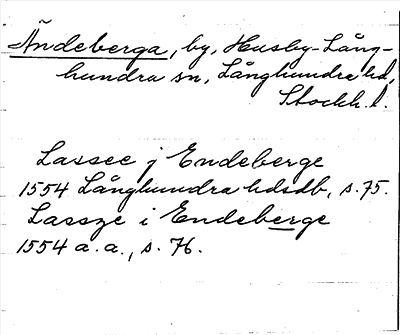 Ändeberga, by, Husby-Lång-
hundra sn, Långhundra hd,
Stockh. l.
Lassee j Endeberge
1554 Långhundra hdsdb, s. 75.
Lassze i Endeberge
1554 a. a., s. 76.